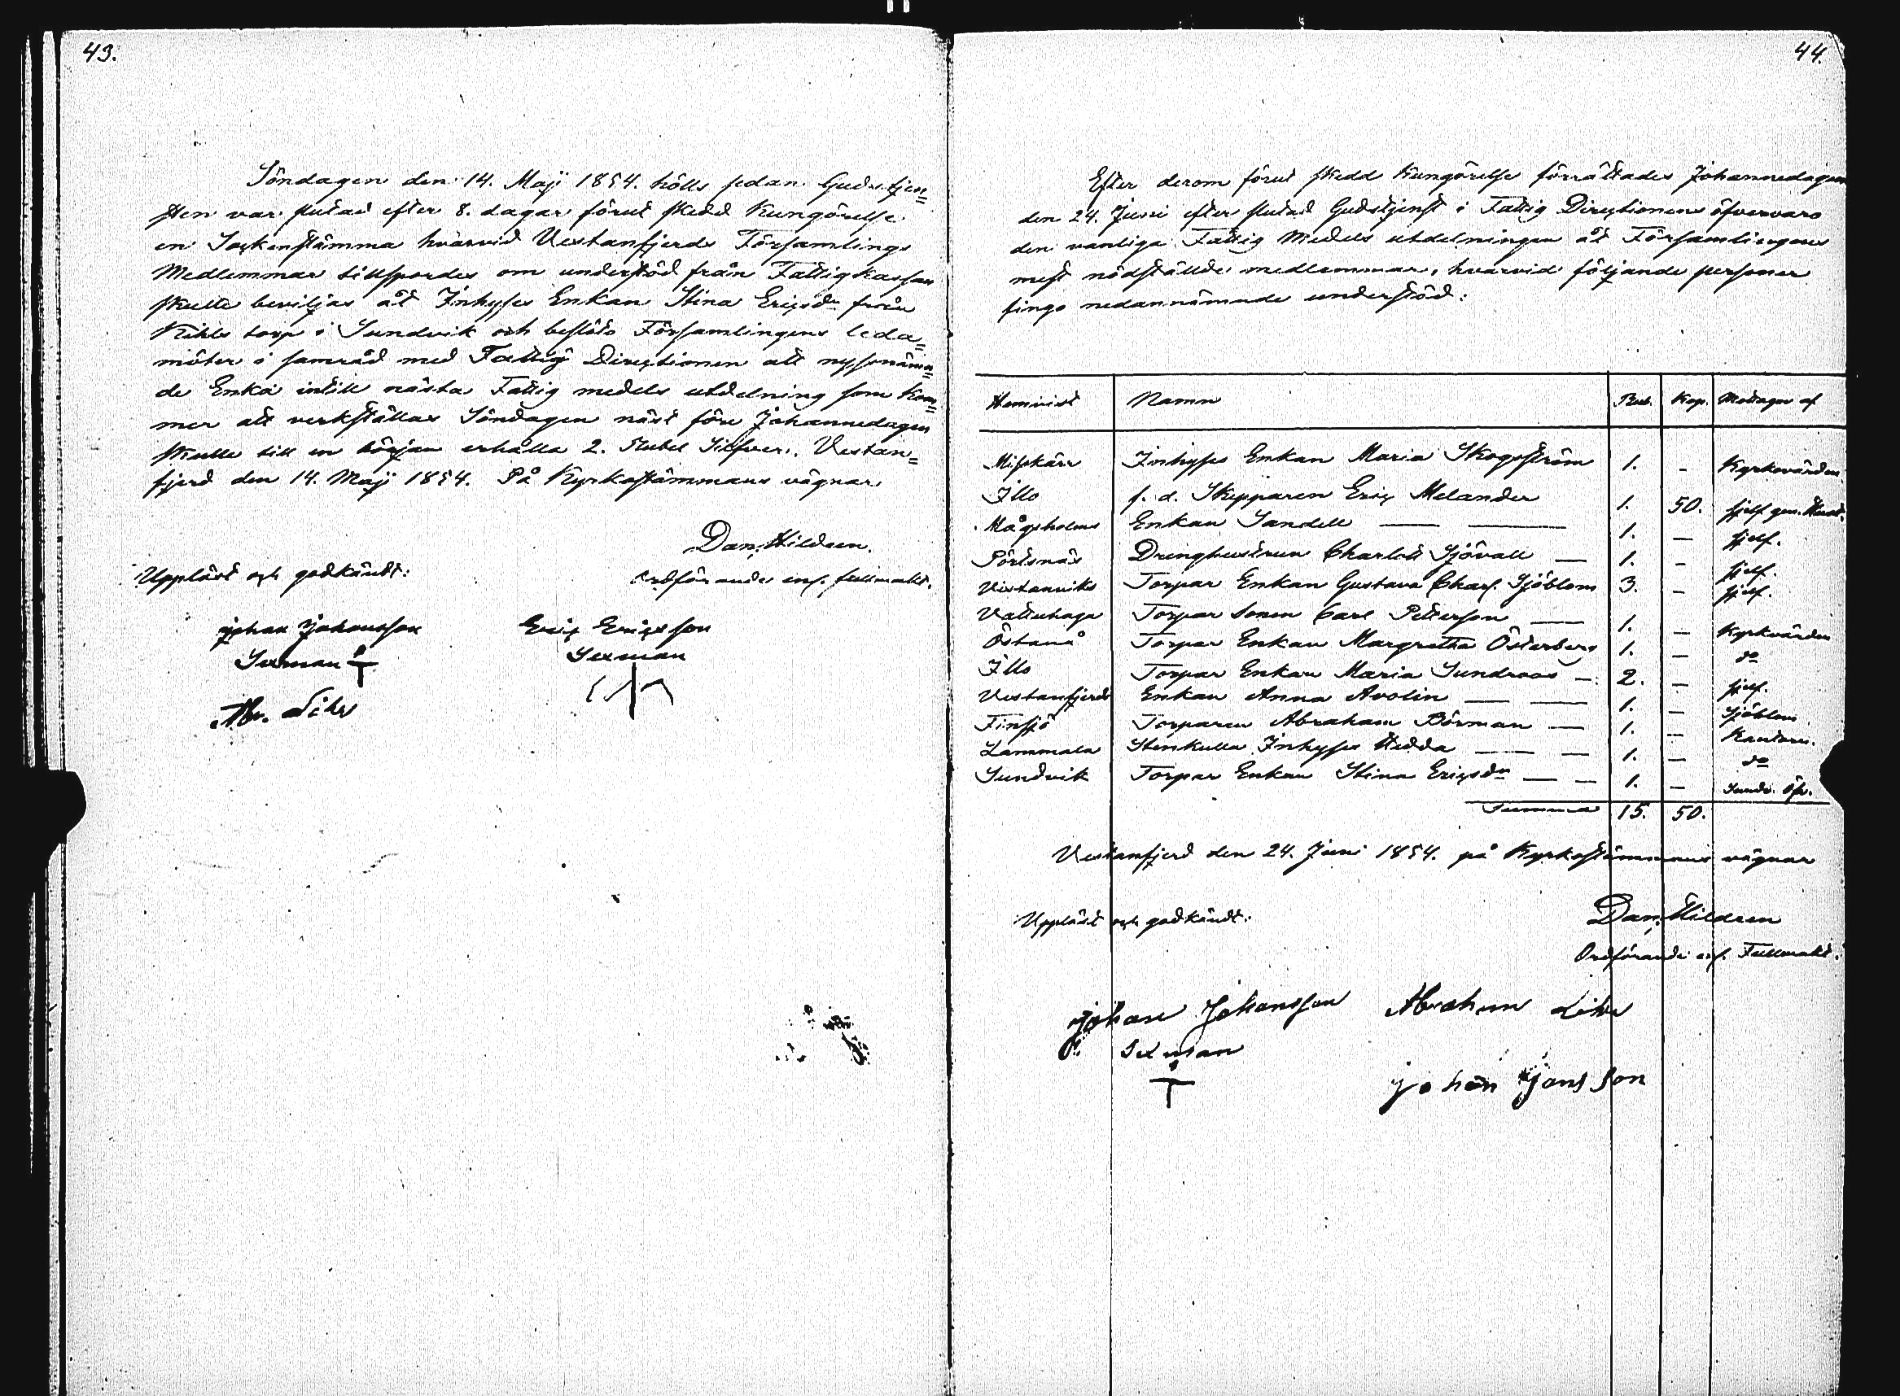 43.
Söndagen den 14. Maji 1854. hölls sedan Gudstjen=
sten var slutad efter 8. dagar förut skedd Kungörelse
en Sockenstämma hvarvid Vestanfjerds Församlings
Medlemmar tillspordes om understöd från Fattigkassan
skulle beviljas åt Inhyses Enkan Stina Ericsdr från
torp i Sundvik och beslöts Församlingens leda=
möter i samråd med Fattig Directionen att nyssnämn=
de Enka intill nästa Fattig medels utdelning som kom=
mer att verkställas Söndagen näst före Johannedagen
skulle till en början erhålla 2. Rubel Silfver. Vestan=
fjerd den 14. Maji 1854. På Kyrkostämmans vägnar
Dan. Hildeen.
Uppläst och godkändt: Ordförande enl. fullmakt.
Johan Johansson Eric Ericsson
Sexman Sexman
Abr.
44.
Efter derom förut skedd Kungörelse förrättades Johannedagen
den 24. Juni efter slutad Gudstjenst i Fattig Directionens öfvervaro
den vanliga Fattig Medels utdelningen åt Församlingens
mest nödställde medlemmar, hvarvid följande personer
fingo nedannämnde understöd:
Hemvist Namn Rub. Kop. Mottages af
Misskärr Inhyses Enkan Maria Skogström 1. - Kyrkovärden
Illo f. d. Skepparen Eric Melander 1. 50. sjelf gen.
Mågsholms Enkan Sandell 1. - sjelf.
Pörtsnäs Drenghustrun Charlott Sjövall 1. - sjelf.
Vestanviks Torpar Enkan Gustava Charl. Sjöblom 3. - sjelf.
Valtuhaga Torpar Sonen Carl Petterson 1. - Kyrkvärden
Östanå Torpar Enkan Margretha Österberg 1. - do
Illo Torpar Enkan Maria Sundroos 2. - sjelf.
Vestanfjerds Enkan Anna Avolin 1. - Sjöblom
Finsjö Torparen Abraham Börman 1. - Kantorn.
Lammala Stenkulla Inhyses Hedda 1. - do
Sundvik Torpar Enkan Stina Ericsdr 1. -
Summa 15. 50.
Vestanfjerd den 24. Juni 1854. på Kyrkostämmans vägnar
Uppläst och godkändt: Dan. Hildeen
Ordförande enl. Fullmakt.
Johan Johansson Abraham
Sexman
Johan Jansson